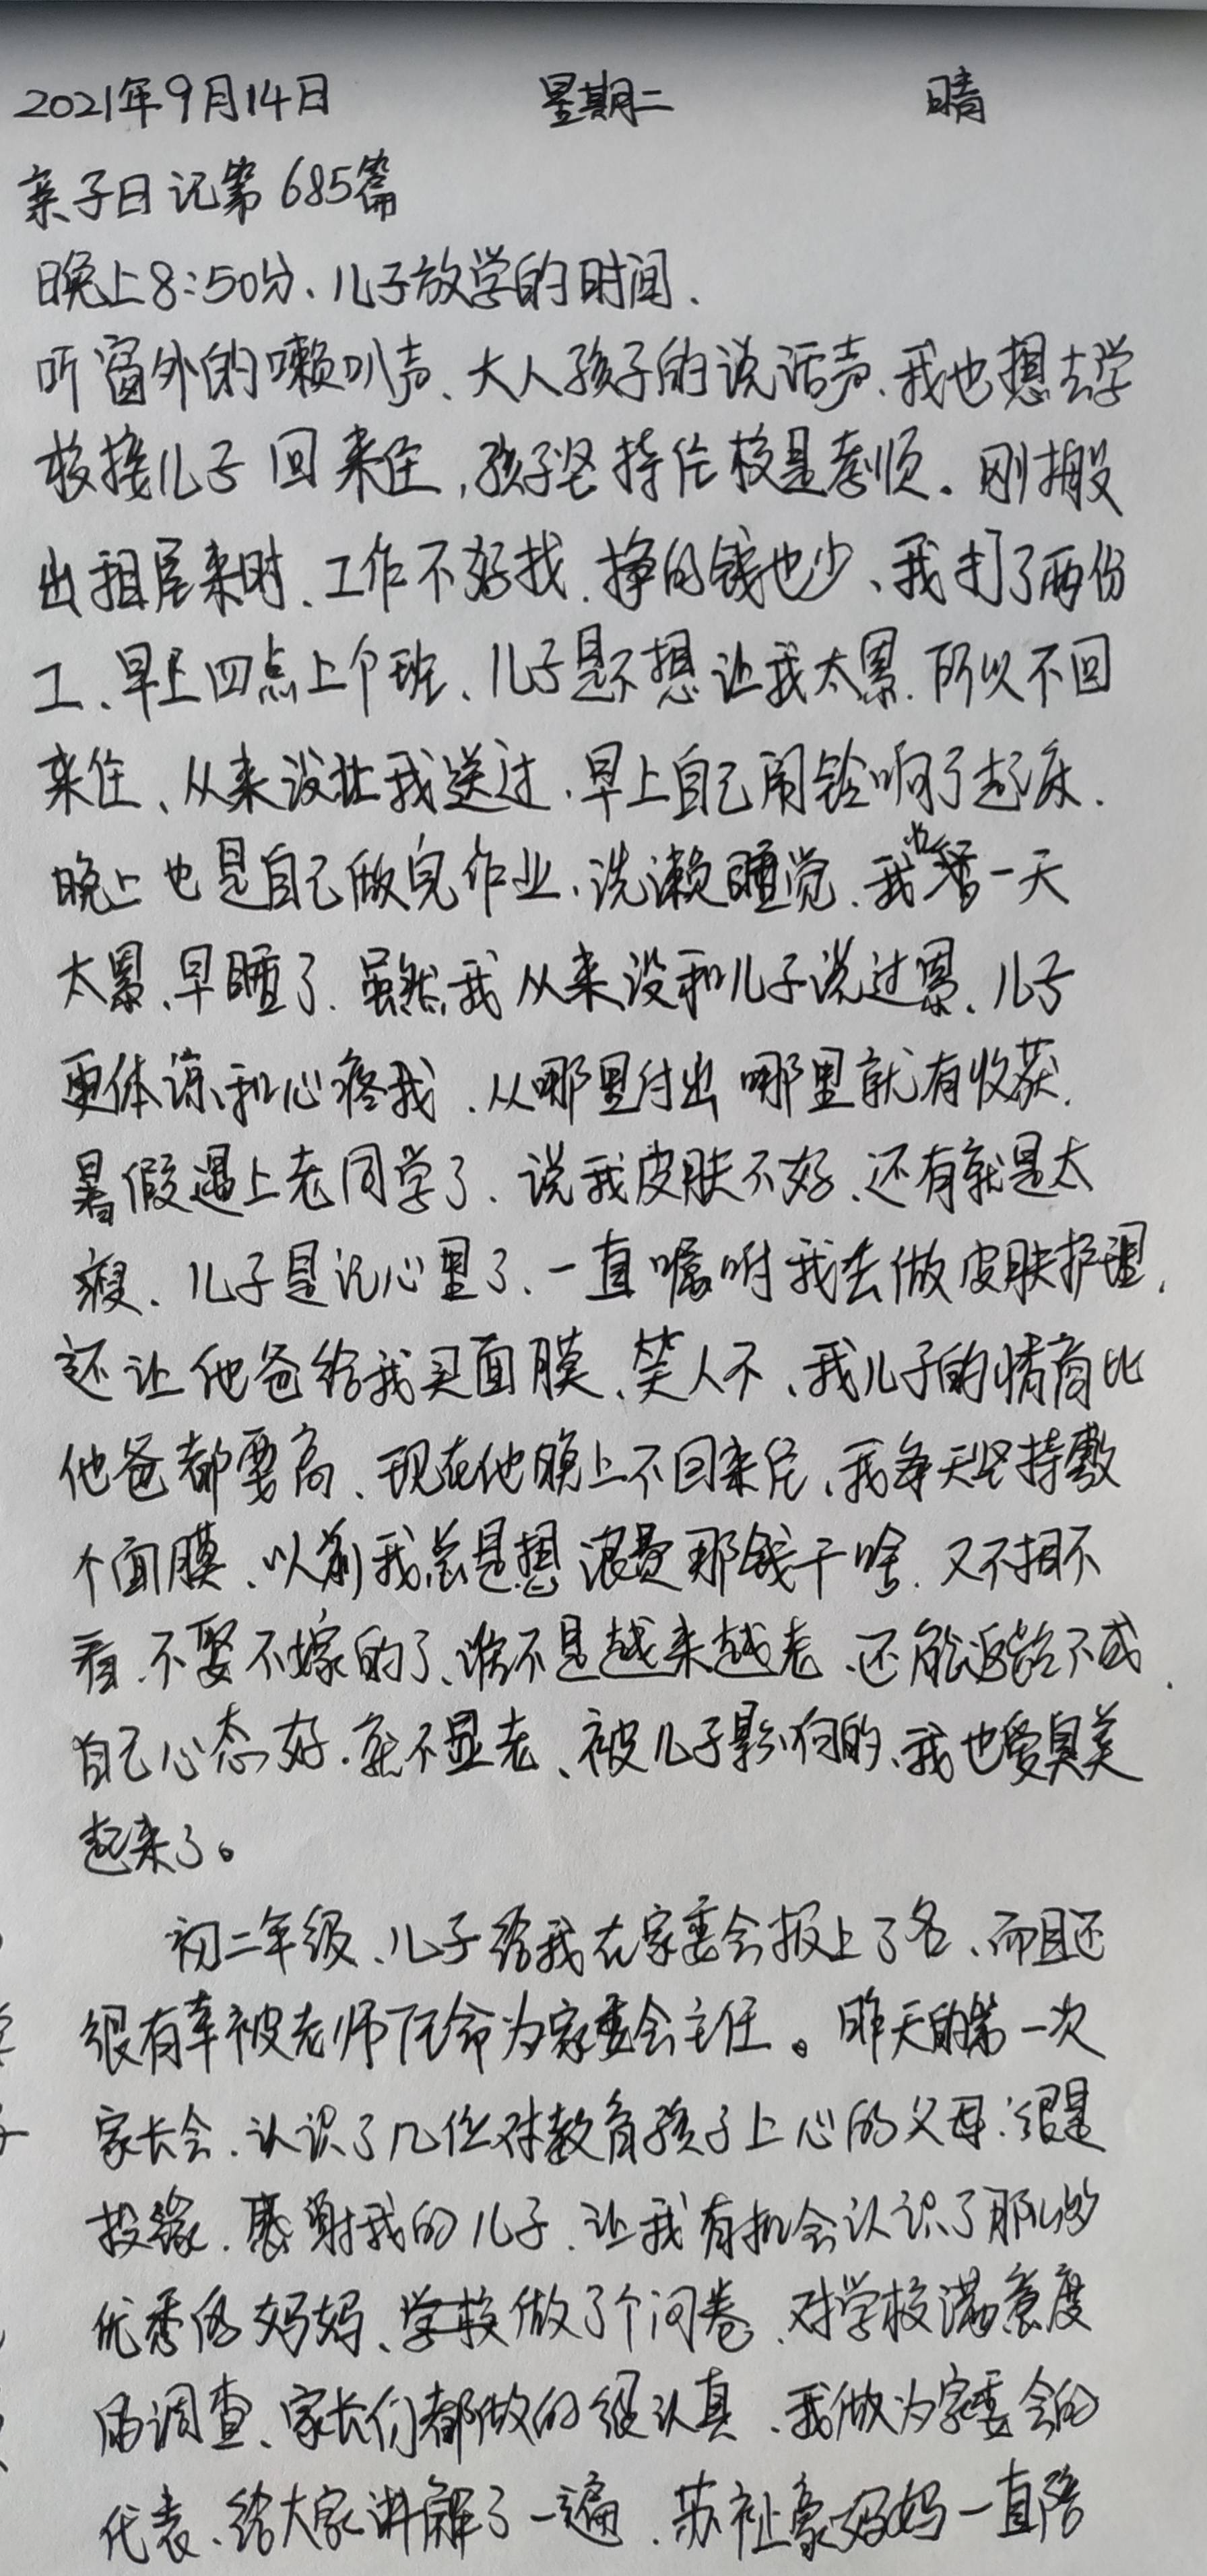 2021年9月14日 星期二 晴
亲子日记第685篇
晚上8:50分、儿子放学的时间、
听窗外的嗽叭声、大人孩子的说话声、我也想去学
校接儿子回来住,孩子坚持住校是孝顺。刚搬
出租屋来时、工作不好找、挣的钱也少、我打了两份
工、早上四点上个班、儿子是不想让我太累、所以不回
来住、从来没让我送过、早上自己闹铃响了起床、
晚上也是自己做完作业、洗漱睡觉、我也一天
太累、早睡了、虽然我从来没和儿子说过累、儿子
更体谅和心疼我、从哪里付出哪里就有收获、
暑假遇上老同学了、说我皮肤不好、还有就是太
瘦、儿子是记心里了、一直嘱咐我去做皮肤护理、
还让他爸给我买面膜、笑人不、我儿子的情商比
他爸都要高、现在他晚上不回来住、我每天坚持敷
个面膜、以前我总是想浪费那钱干啥、又不相不
看、不娶不嫁的了、谁不是越来越老、还能返龄不成、
自己心态好、就不显老、被儿子影响的、我也爱臭美
起来了。
初二年级、儿子给我在家委会报上了名、而且还
很有幸被老师任命为家委会主任。昨天的第一次
家长会、认识了几位对教育孩子上心的父母、很是
投缘、感谢我的儿子、让我有机会认识了那么多
优秀的妈妈、学校做了个问卷、对学校满意度
的调查、家长们都做的很认真、我做为家委会的
代表、给大家讲解了一遍、苏祉豪妈妈一直陪